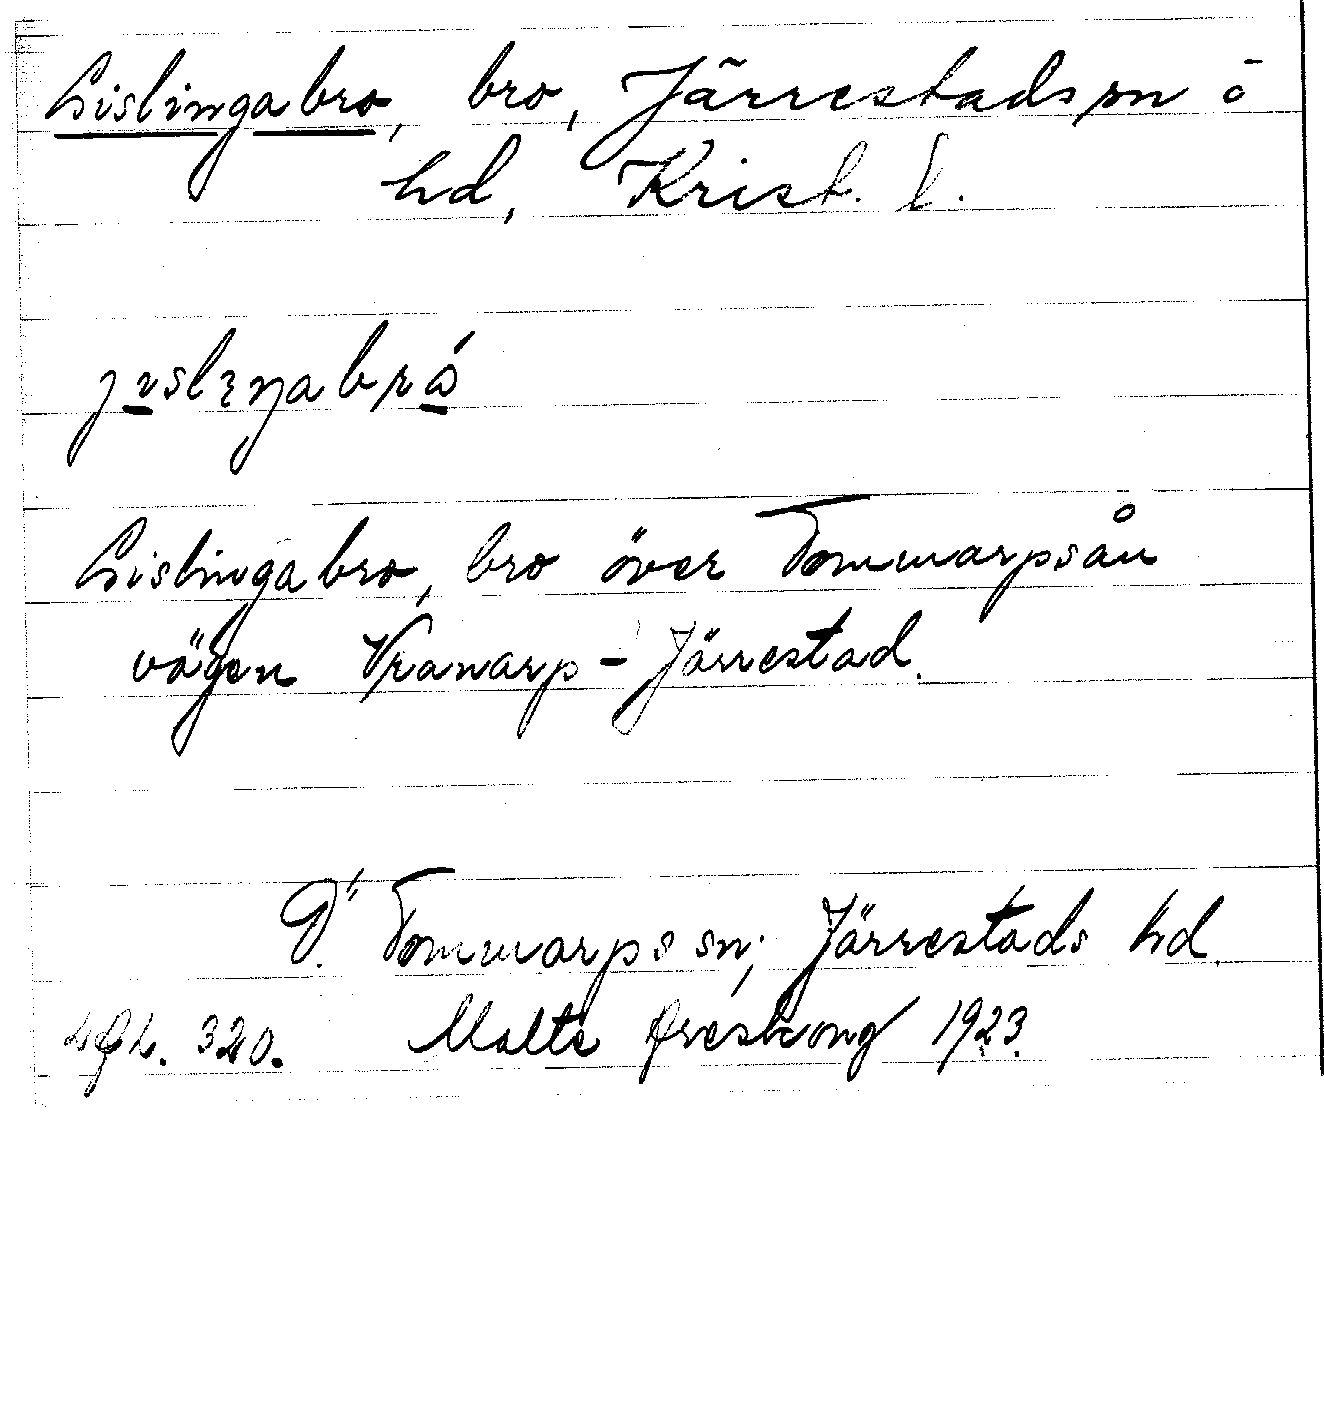 Gislingabro, bro, Järrestads sn o
hd, Krist. l.
jɪslɪŋabrɷ́
Gislingabro, bro över Tommarpsån
vägen Vranarp - Järrestad.
Ö. Tommarps sn; Järrestads hd.
320. Malte Areskoug 1923.